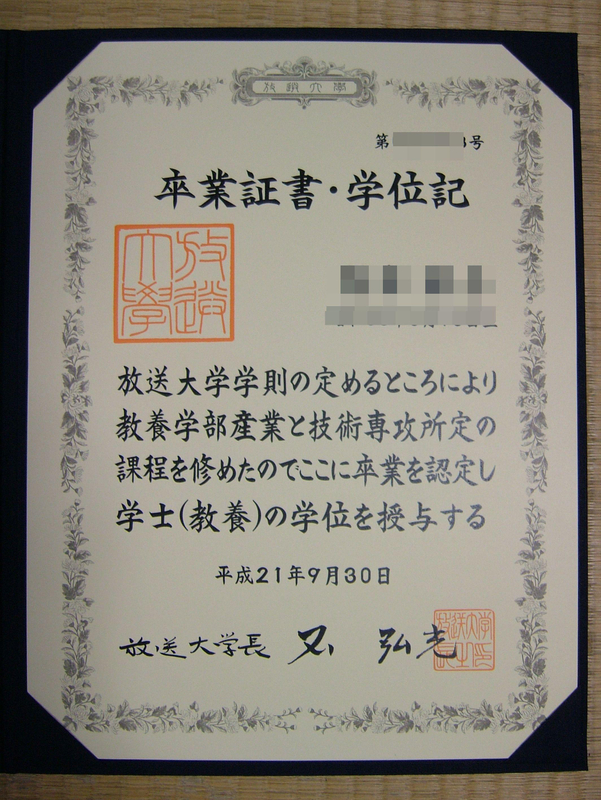 放送大學
第 号
卒業証書・学位記
放送大學
放送大学学則の定めるところにより
教養学部産業と技術専攻所定の
課程を修めたのでここに卒業を認定し
学士(教養)の学位を授与する
平成21年9月30日
放送大学長 弘光
放送大学
長之印